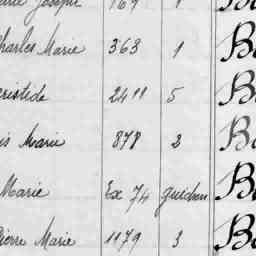 Joseph 169 1
Charles Marie 363 1 B
Aristide 2411 5 B
is Marie 878 2 B
Marie Ex 74 B
Pierre Marie 1179 3 B